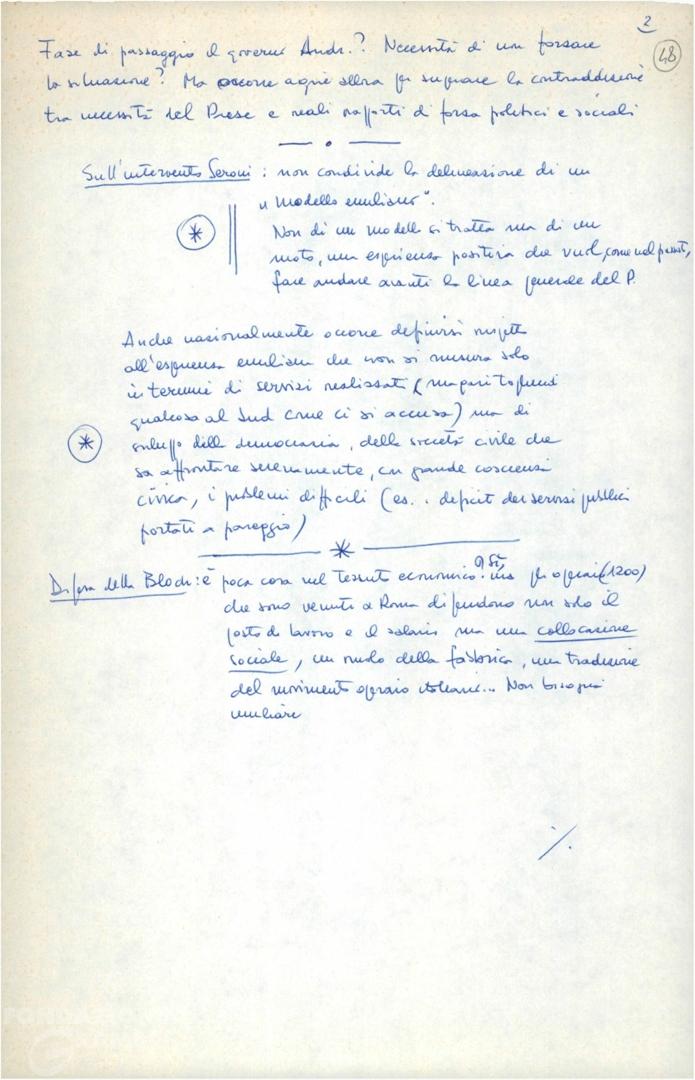 2
48
Fase di passaggio il governo Andr.? Necessità di non forzare
la situazione? Ma occorre agire allora per superare la contraddizione
tra necessità del Paese e reali rapporti di forza politici e sociali
Sull'intervento Seroni : non condivide la delineazione di un
"modello emiliano".
Non di un modello si tratta ma di un
moto, una esperienza positiva che vuol, come nel passato,
fare andare avanti la linea generale del P.
Anche nazionalmente occorre definirsi rispetto
all'esperienza emiliana che non si misura solo
in termini di servizi realizzati (magari togliendo
qualcosa al Sud come ci si accusa) ma di
sviluppo della democrazia, della società civile che
sa affrontare serenamente, con grande coscienza
civica, i problemi difficili (es. : deficit dei servizi pubblici
portati a pareggio)
Difesa della Bloch : è poca cosa nel tessuto economico. ma gli operai (1200)
che sono venuti a Roma difendono non solo il
posto di lavoro e il salario ma una collocazione
sociale, un ruolo della fabbrica, una tradizione
del movimento operaio italiano... Non bisogna
umiliare
./.